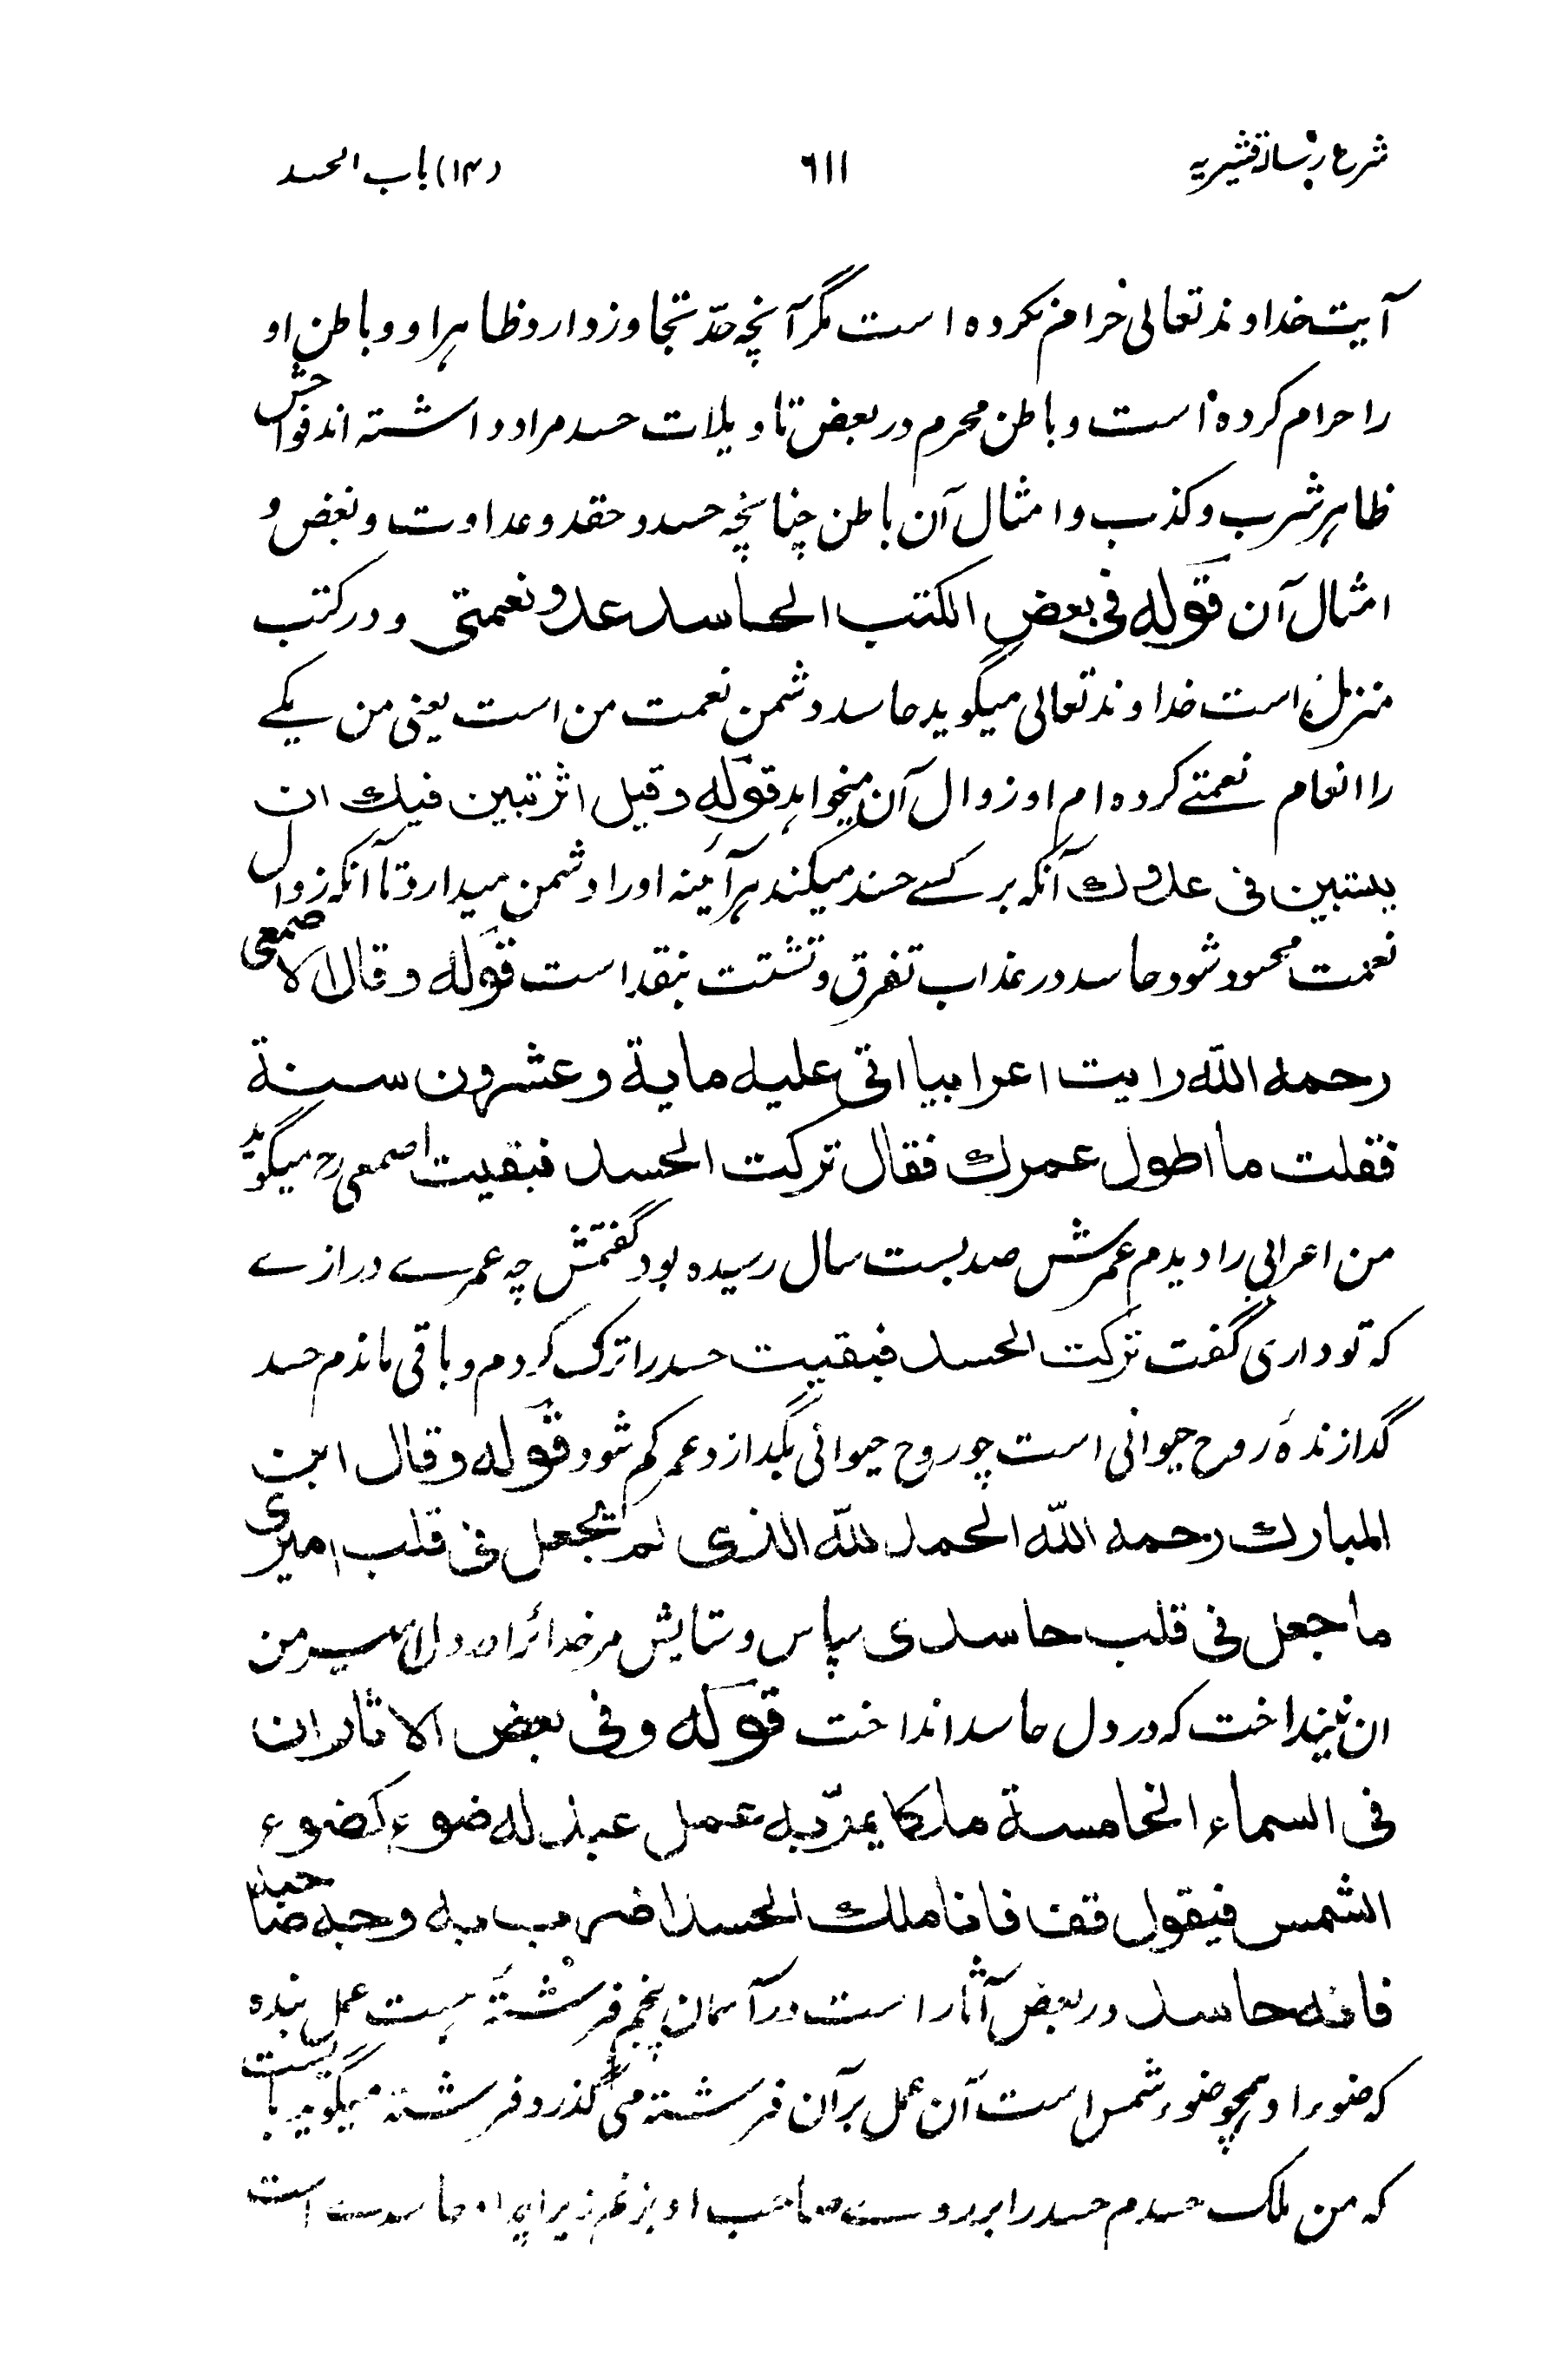 شرح رسالۀ قشیریه
٦١١
(١٣) باب الحسد
آیت خداوند تعالی حرام نکرده است مگر آنچه حدّ تجاوز دارد و ظاهر او و باطن او
را حرام کرده است و باطن محرم در بعض تاویلات حسد مراد داشته اند فواحش
ظاهر شرب و کذب و امثال آن باطن چنانچه حسد و حقد و عداوت و بغض و
امثال آن قوله فی بعض الکتب الحاسد عدو نعمتی و در کتب
منزل است خداوند تعالی میگوید حاسد دشمن نعمت من است یعنی من یکے
را انعام نعمتے کرده ام او زوال آن میخواهد قوله وقیل اثر تبین فیك ان
یستبین فی عدوك آنکه بر کسے حسد میکند هرآئینه او را دشمن میدارد تا آنکه زوال
نعمت محسود شود حاسد در عذاب تفرق و تشتت بنقد است قوله وقال الاصمعی
رحمه الله رایت اعرابیا اتی علیه مایة وعشرون سنة
فقلت ما اطول عمرك فقال ترکت الحسد فبقیت اصمعی رح میگوید
من اعرابی را دیدم عمرش صد بست سال رسیده بود گفتمش چه عمرے درازے
که تو داری گفت ترکت الحسد فبقیت حسد را ترک کردم و باقی ماندم حسد
گدازندۀ روح حیوانی است چو روح حیوانی بگدازد عمر کم شود قوله وقال ابن
المبارك رحمه الله الحمد لله الذی لم یجعل فی قلب امیری
ما جعل فی قلب حاسدی سپاس و ستایش مر خدائرا در دل امیر من
ان نینداخت که در دل حاسد انداخت قوله وفی بعض الاثار ان
فی السماء الخامسة ملکا یمرّ به عمل عبد له ضوء کضوء
الشمس فیقول قف فانا ملك الحسد اضرب به وجه صاحبه
فانه حاسد در بعض آثار است در آسمان پنجم فرشتۀ هست عمل بنده
که ضوء او همچو ضوء شمس است آن عمل بر آن فرشته می گذرد فرشته میگوید بایست
که من ملک حسدم حسد را بر روے صاحب او بزنم زیراچه او حاسدست است